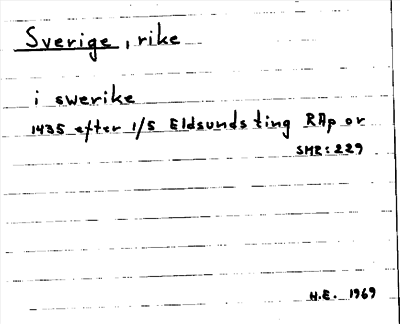 Sverige, rike
i swerike
1435 efter 1/5 Eldsunds ting RAp or
SMR: 229
H.E. 1969